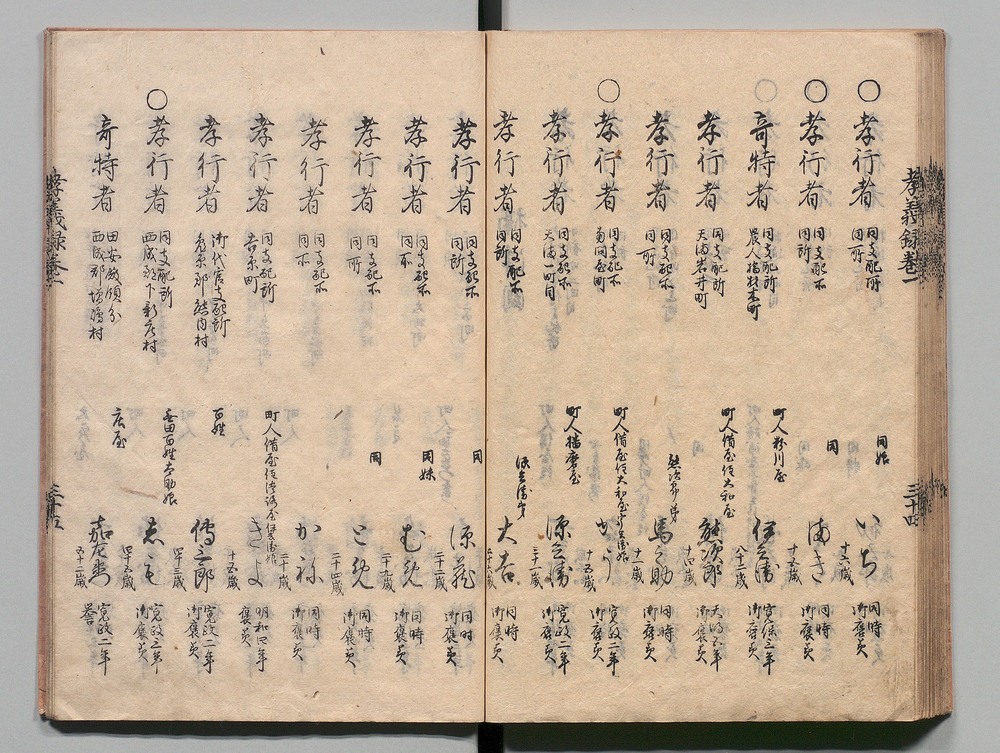 孝義録巻一
三十四
○孝行者 同支配所 同所 同娘 いち 十六歳 同時 御褒美
○孝行者 同支配所 同所 同 まき 十五歳 同時 御褒美
○奇特者 同支配所 農人橋材木町 町人粉川屋 伊兵衛 八十二歳 寛保三年 御褒美
孝行者 同支配所 天満岩井町 町人借屋住大和屋 熊次郎 十四歳 天明五年 御褒美
孝行者 同支配所 同所 熊次郎弟 馬之助 十一歳 同時 御褒美
○孝行者 同支配所 町人借屋住大和屋 十五歳 寛政二年 御褒美
孝行者 同支配所 天満一町目 町人播磨屋 源兵衛 三十一歳 寛政二年 御褒美
孝行者 同支配所 同所 源兵衛弟 大吉 同時 御褒美
孝行者 同支配所 同所 同 源蔵 同時 御褒美
孝行者 同支配所 同所 同妹 むめ 二十九歳 同時 御褒美
孝行者 同支配所 同所 同 とめ 二十四歳 同時 御褒美
孝行者 同支配所 同所 かね 二十歳 同時 御褒美
孝行者 同支配所 吉原町 町人借屋住淡路屋伊兵衛娘 きよ 十五歳 明和四年 褒美
孝行者 御代官支配所 兎原郡熊内村 百姓 伝三郎 四十三歳 寛政二年 御褒美
○孝行者 同支配所 西成郡下新庄村 無田百姓太助娘 しも 四十五歳 寛政三年 御褒美
奇特者 田安殿領分 西成郡増嶋村 庄屋 嘉左衛門 五十二歳 寛政二年 誉
孝義録巻一
三十五